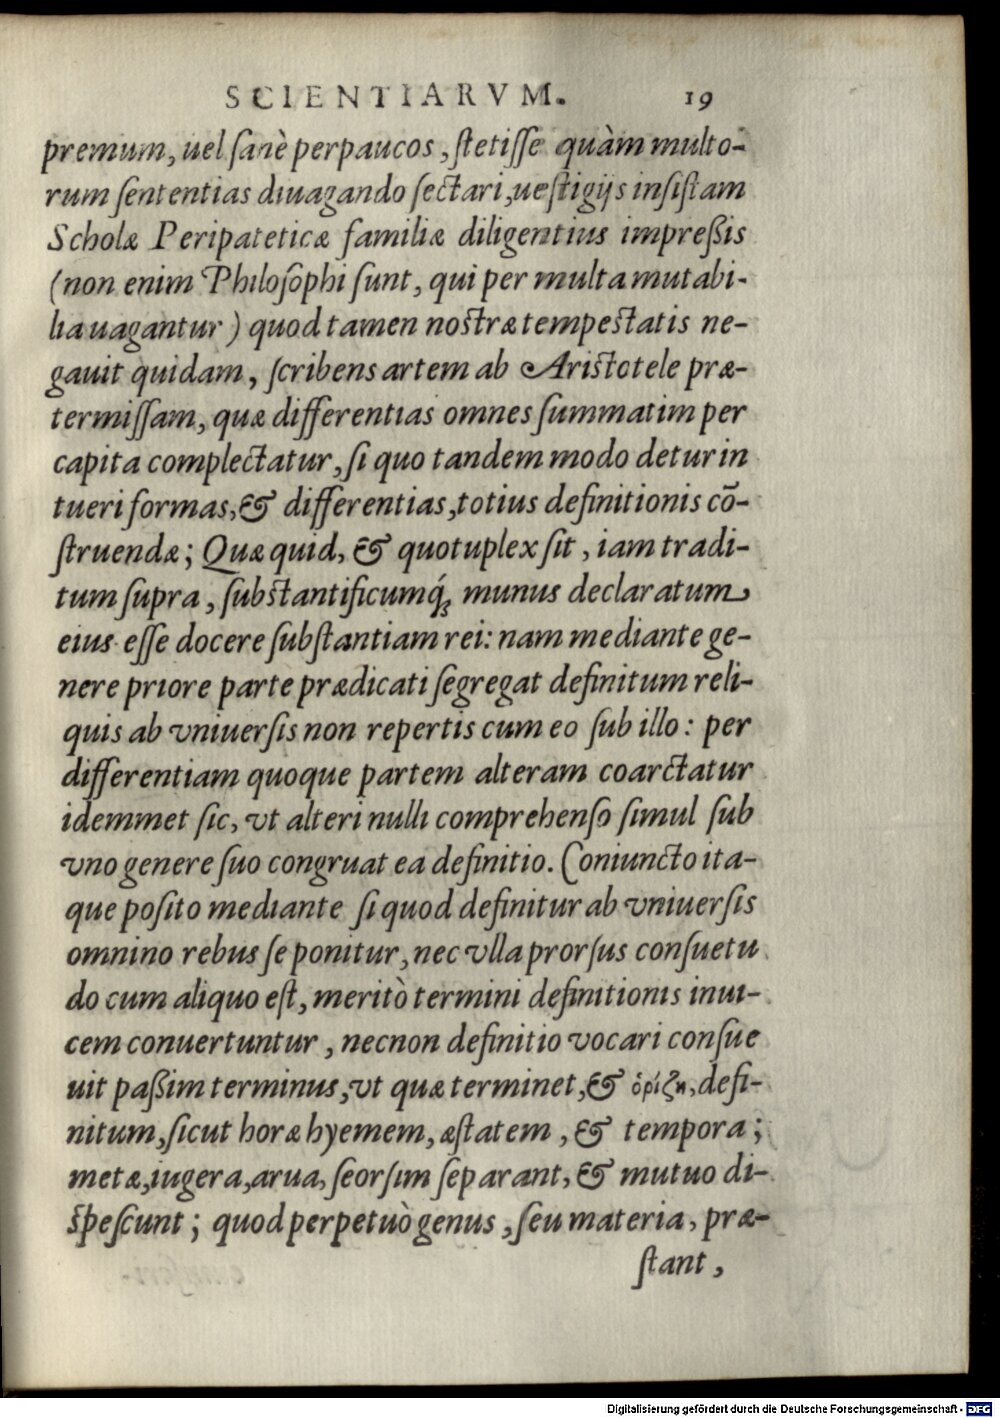 SCIENTIARVM. 19
premum, uel sanè perpaucos, stetisse quàm multo-
rum sententias diuagando sectari, uestigijs insistam
Scholæ Peripateticæ familiæ diligentius impreßis
(non enim Philosophi sunt, qui per multa mutabi-
lia uagantur) quod tamen nostræ tempestatis ne-
gauit quidam, scribens artem ab Aristotele præ-
termissam, quæ differentias omnes summatim per
capita complectatur, si quo tandem modo detur in
tueri formas, & differentias, totius definitionis cō-
struendæ; Quæ quid, & quotuplex sit, iam tradi-
tum supra, substantificumq́; munus declaratum
eius esse docere substantiam rei: nam mediante ge-
nere priore parte prædicati segregat definitum reli-
quis ab vniuersis non repertis cum eo sub illo: per
differentiam quoque partem alteram coarctatur
idemmet sic, vt alteri nulli comprehenso simul sub
vno genere suo congruat ea definitio. Coniuncto ita-
que posito mediante si quod definitur ab vniuersis
omnino rebus se ponitur, nec vlla prorsus consuetu
do cum aliquo est, meritò termini definitionis inui-
cem conuertuntur, necnon definitio vocari consue
uit paßim terminus, vt quæ terminet, & ὁρίζη, defi-
nitum, sicut horæ hyemem, æstatem, & tempora;
metæ, iugera, arua, seorsim separant, & mutuo di-
spescunt; quod perpetuò genus, seu materia, præ-
stant,
Digitalisierung gefördert durch die Deutsche Forschungsgemeinschaft - DFG